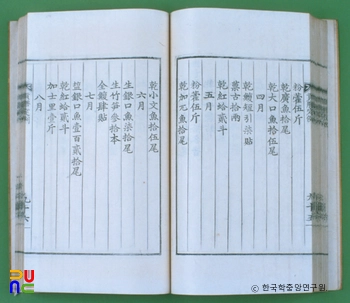 粉藿伍斤
乾廣魚拾尾
乾大口魚拾伍尾
四月
乾鰒短引柒貼
藁古拾兩
五月
乾紅蛤貳斗
粉藿伍斤
乾加兀魚拾尾
乾小文魚拾伍尾
六月
生銀口魚柒拾尾
生竹笋參拾本
全鰒肆貼
七月
鹽銀口魚壹百尾
乾紅蛤貳斗
加士里壹斤
八月
© 한국학중앙연구원